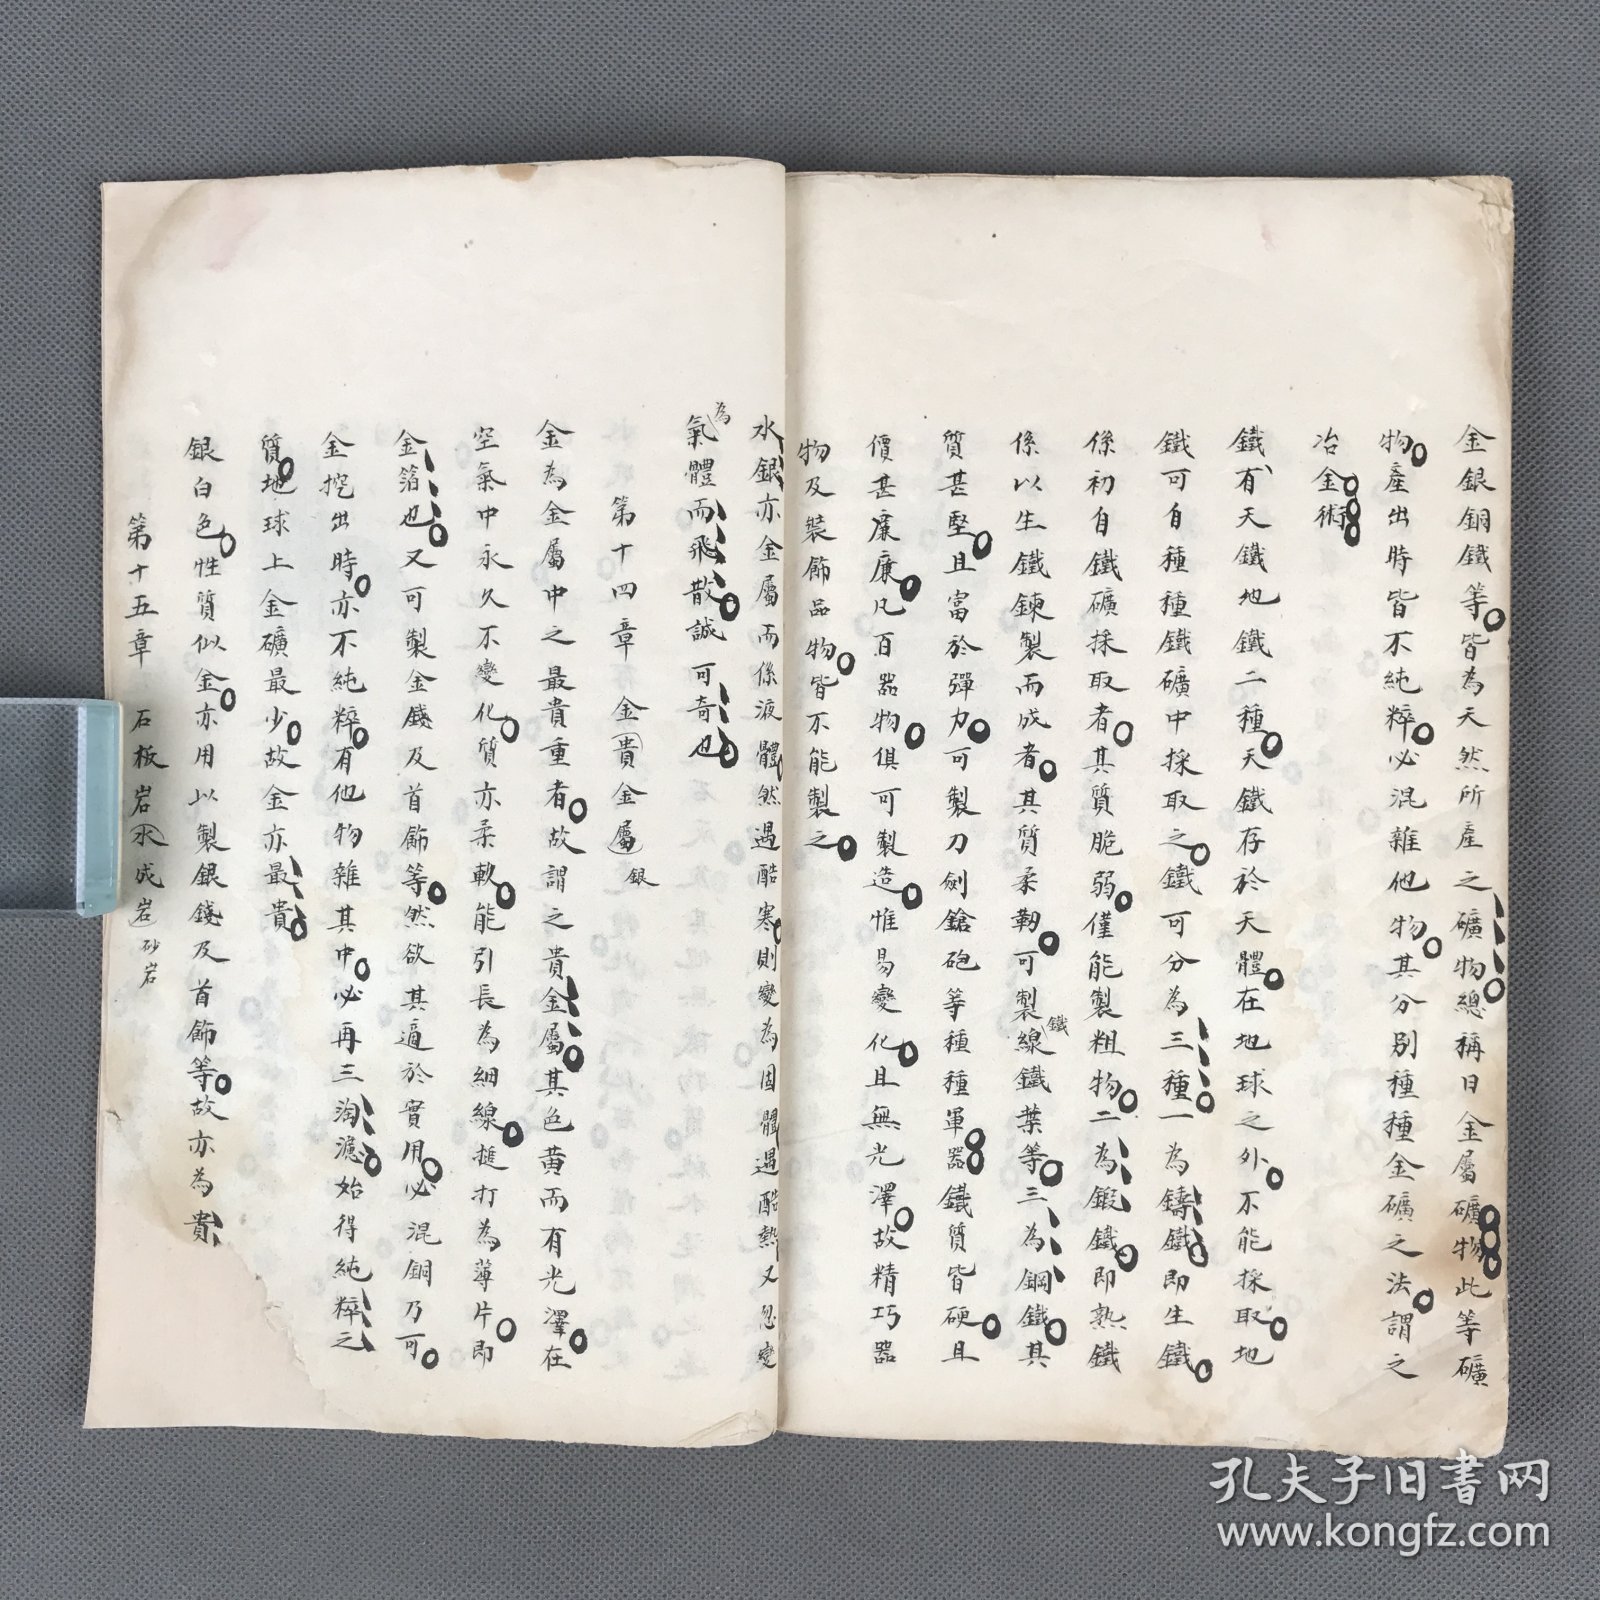 金銀銅鐵等皆為天然所產之礦物總稱曰金屬礦物此等礦
物產出時皆不純粹必混雜他物其分別種種金礦之法謂之
冶金術
鐵有天鐵地鐵二種天鐵存於天體在地球之外不能採取地
鐵可自種種鐵礦中採取之鐵可分為三種一為鑄鐵即生鐵
係初自鐵礦採取者其質脆弱僅能製粗物二為鍛鐵即熟鐵
係以生鐵鍊製而成者其質柔韌可製鐵線鐵葉等三為鋼鐵其
質甚堅且富於彈力可製刀劍鎗砲等種種軍器鐵質皆硬且
價甚廉廉凡百器物俱可製造惟易變化且無光澤故精巧器
物及裝飾品物皆不能製之
水銀亦金屬而係液體然遇酷寒則變為固體遇酷熱又忽變
為氣體而飛散誠可奇也
第十四章 金(貴金屬)銀
金為金屬中之最貴重者故謂之貴金屬其色黃而有光澤在
空氣中永久不變化質亦柔軟能引長為細線搥打為薄片即
金箔也又可製金錢及首飾等然欲其適於實用必混銅乃可
金挖出時亦不純粹有他物雜其中必再三淘濾始得純粹之
質地球上金礦最少故金亦最貴
銀白色性質似金亦用以製銀錢及首飾等故亦為貴
第十五章 石板岩(水成岩)砂岩
孔夫子旧书网
www.kongfz.com